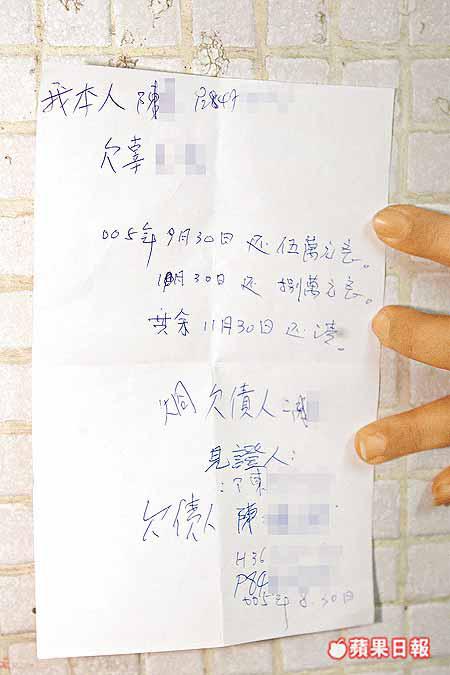 我本人 陳 P84A
欠辜
005年 9月30日 还 伍萬元正。
10月30日 还 捌萬元正。
其余 11月30日 还清。
欠債人
見證人：
陳
欠債人 陳
H36
P84
005年 8.30日
蘋果日報